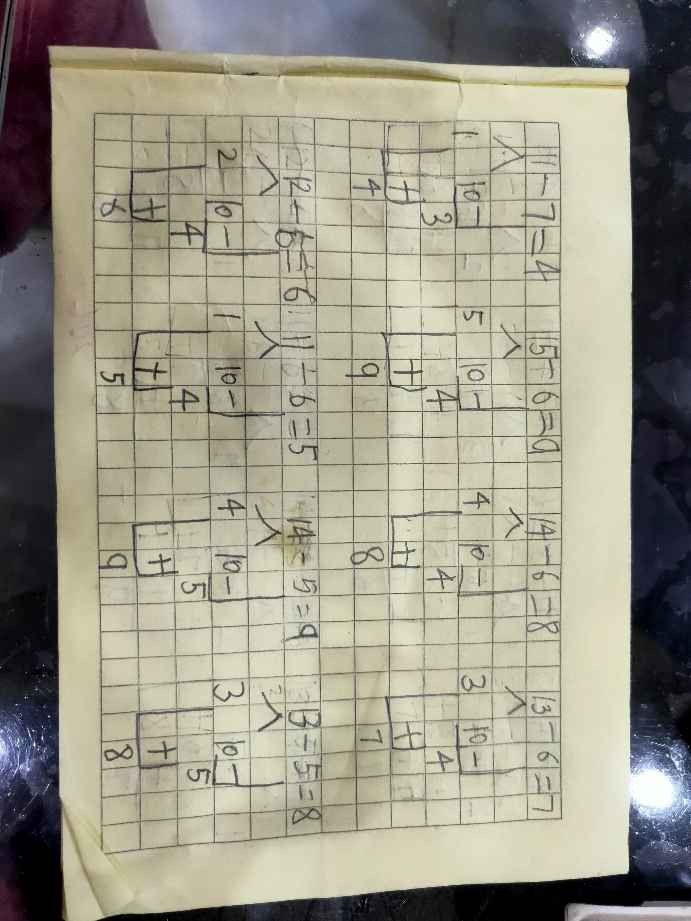 11-7=4 15-6=9 14-6=8 13-6=7
1 10- 5 10- 4 10- 3 10-
3 4 4 4
+ + + +
4 9 8 7
12-6=6 11-6=5 14-5=9 13-5=8
2 10- 1 10- 4 10- 3 10-
4 4 5 5
+ + + +
6 5 9 8